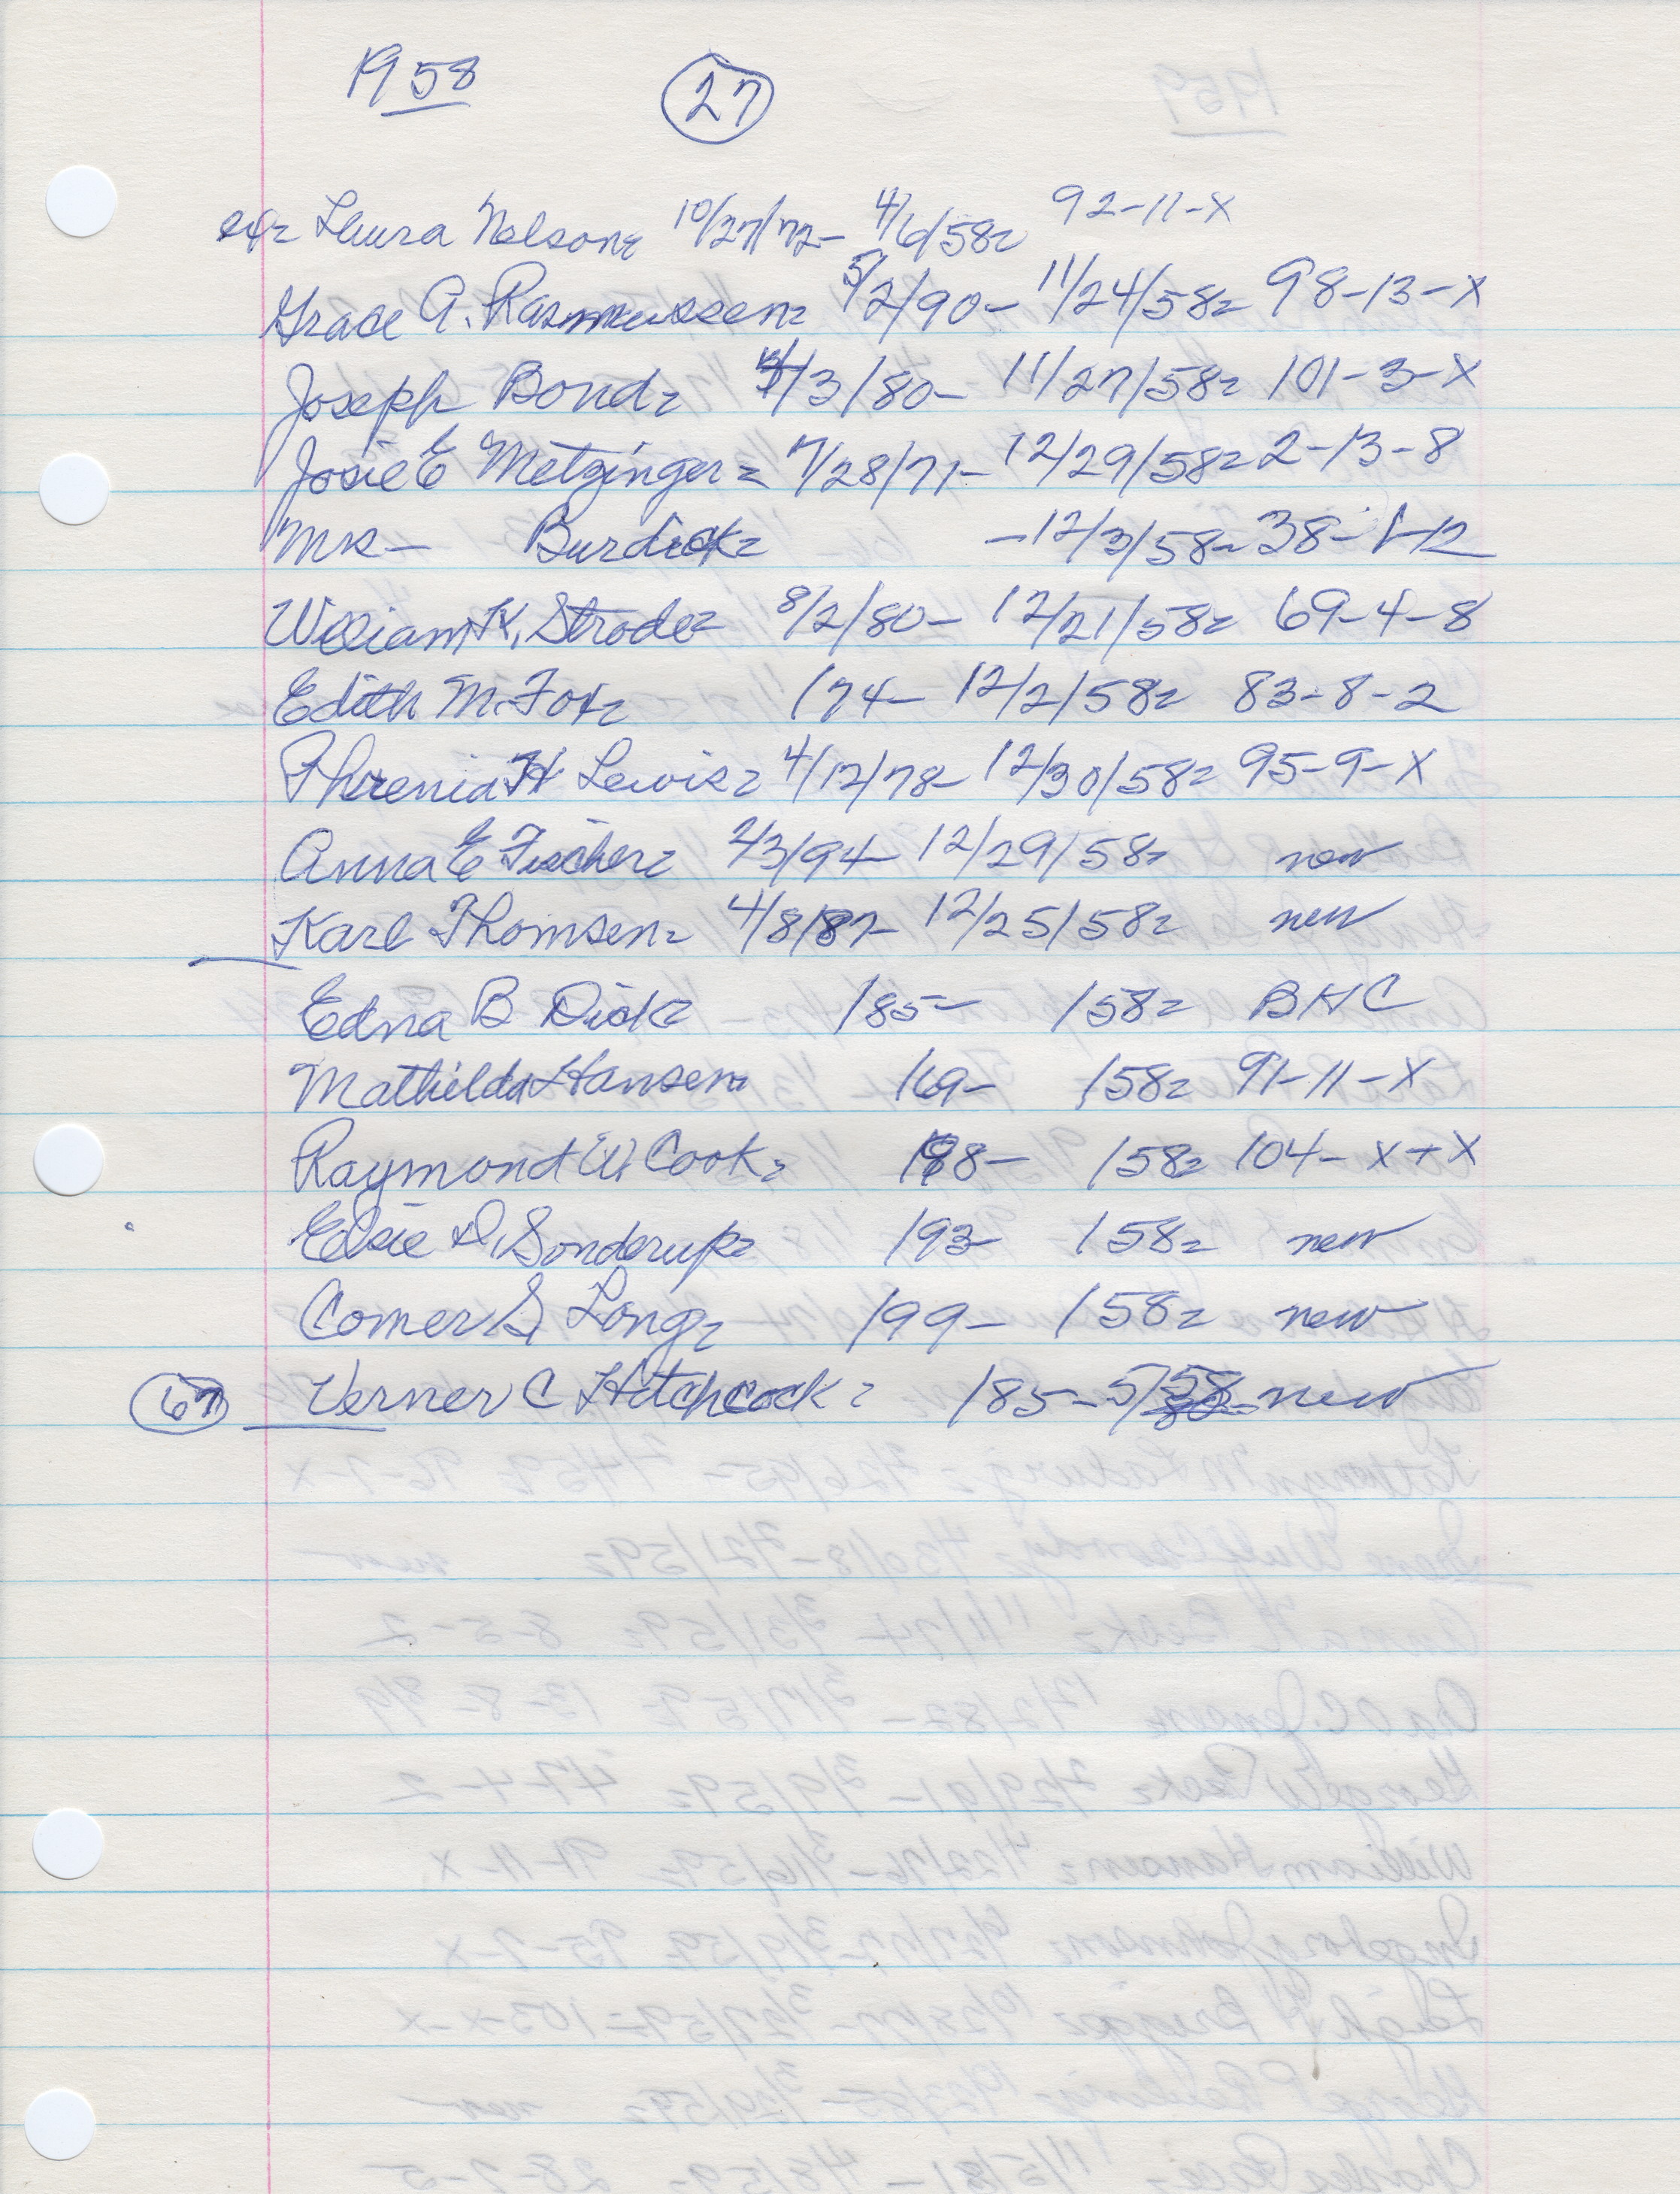 1958 27
Laura Nelson= 10/27/72- 4/6/58= 92-11-X
Grace A. Rasmussen= 5/2/90- 11/24/58= 98-13-X
Joseph Bond= /3/80- 11/27/58= 101-3-X
Josie E Metzinger= 7/28/71- 12/29/58= 2-13-8
Mr- Burdick= -12/3/58= 38-1-12
William K. Strode= 8/2/80- 12/21/58= 69-4-8
Edith M. Fox= /74- 12/2/58= 83-8-2
H Lewis= 4/12/78- 12/30/58= 95-9-X
Anna E Fischer= 2/3/94- 12/29/58= new
Karl Thomsen= 4/8/87- 12/25/58= new
Edna B Dick= /85- /58= BHC
Mathilda Hansen= /69- /58= 91-11-X
Raymond W. Cook= /98- /58= 104-X+X
Elsie D. Sonderup= /93- /58= new
Comer S. Long= /99- /58= new
67 Verner C Hitchcock= /85- 5/58= new